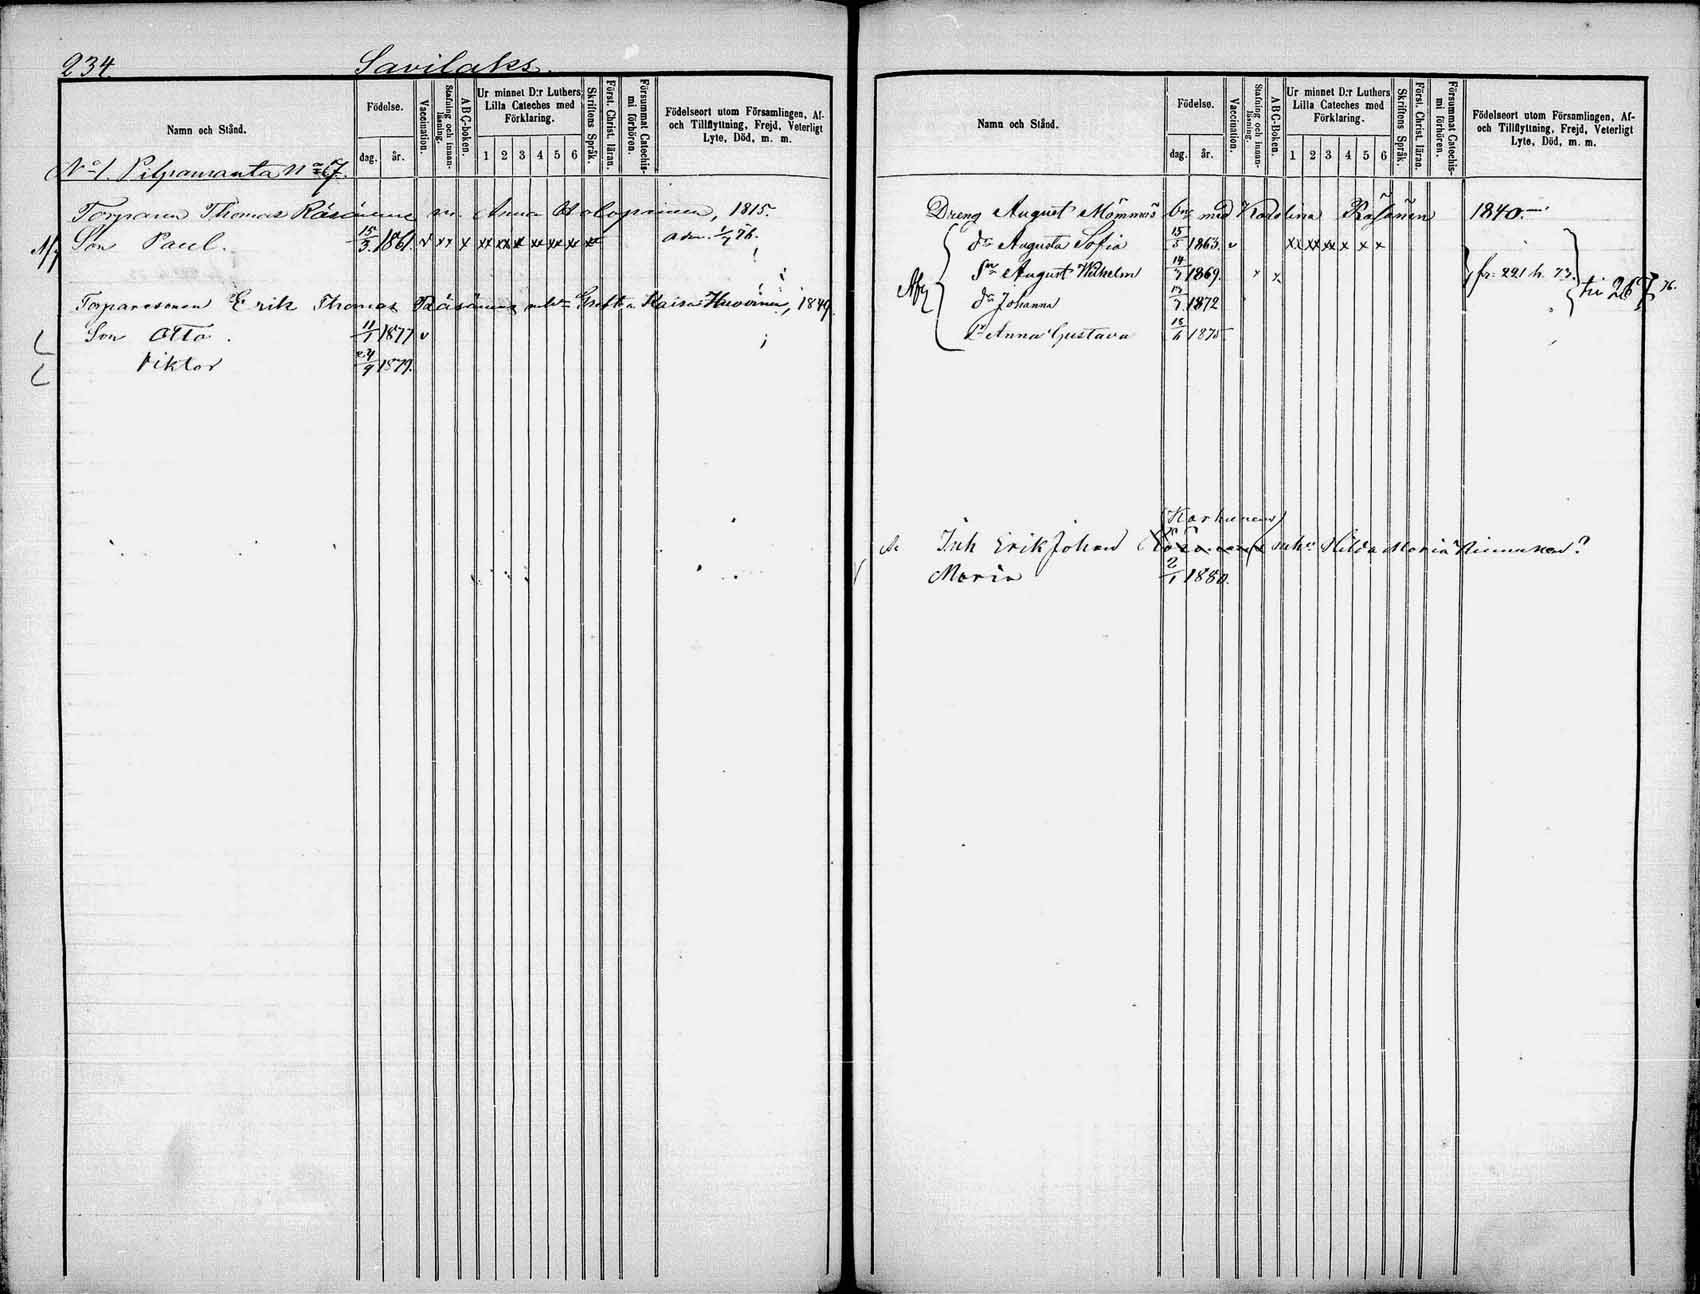 234.
Savilaks.
Namn och Stånd.
Födelse.
dag.
år.
Vaccination.
Stafning och innanläsning.
ABC-boken.
Ur minnet D:r Luthers Lilla Cateches med Förklaring.
1 2 3 4 5 6
Skriftens Språk.
Först. Christ. läran.
Försummat Catechismi förhören.
Födelseort utom Församlingen, Af- och Tillflyttning, Frejd, Veterligt Lyte, Död, m. m.
No 1. Pilpamanta No 7.
Torparen Thomas Räsänen m. Anna Holopainen, 1815.
Afg Son Paul. 15/3 1861. v xx x xx xx x xx xx x xx adm. 1/7 76.
Torparesonen Erik Thomas Räsänen m. Greta Kaisa Huovinen, 1849
Son Otto. 11/1 1877 v
Viktor 24/9 1879.
Namn och Stånd.
Födelse.
dag.
år.
Vaccination.
Stafning och innanläsning.
ABC-Boken.
Ur minnet D:r Luthers Lilla Cateches med Förklaring.
1 2 3 4 5 6
Skriftens Språk.
Först. Christ. läran.
Försummat Catechismi förhören.
Födelseort utom Församlingen, Af- och Tillflyttning, Frejd, Veterligt Lyte, Död, m. m.
Dreng August Mömmös med Karolina Räsänen 1840.
dr Augusta Sofia 15/5 1863. v xx xx xx x x x
Sn August Wilhelm 14/7 1869. x x fr. 221 h. 73.
dr Johanna 1872
Anna Gustava 1875
till 267 76.
(Karhunen)
Inh Erik Johan Hilda Maria ?
Maria 2/1 1880.